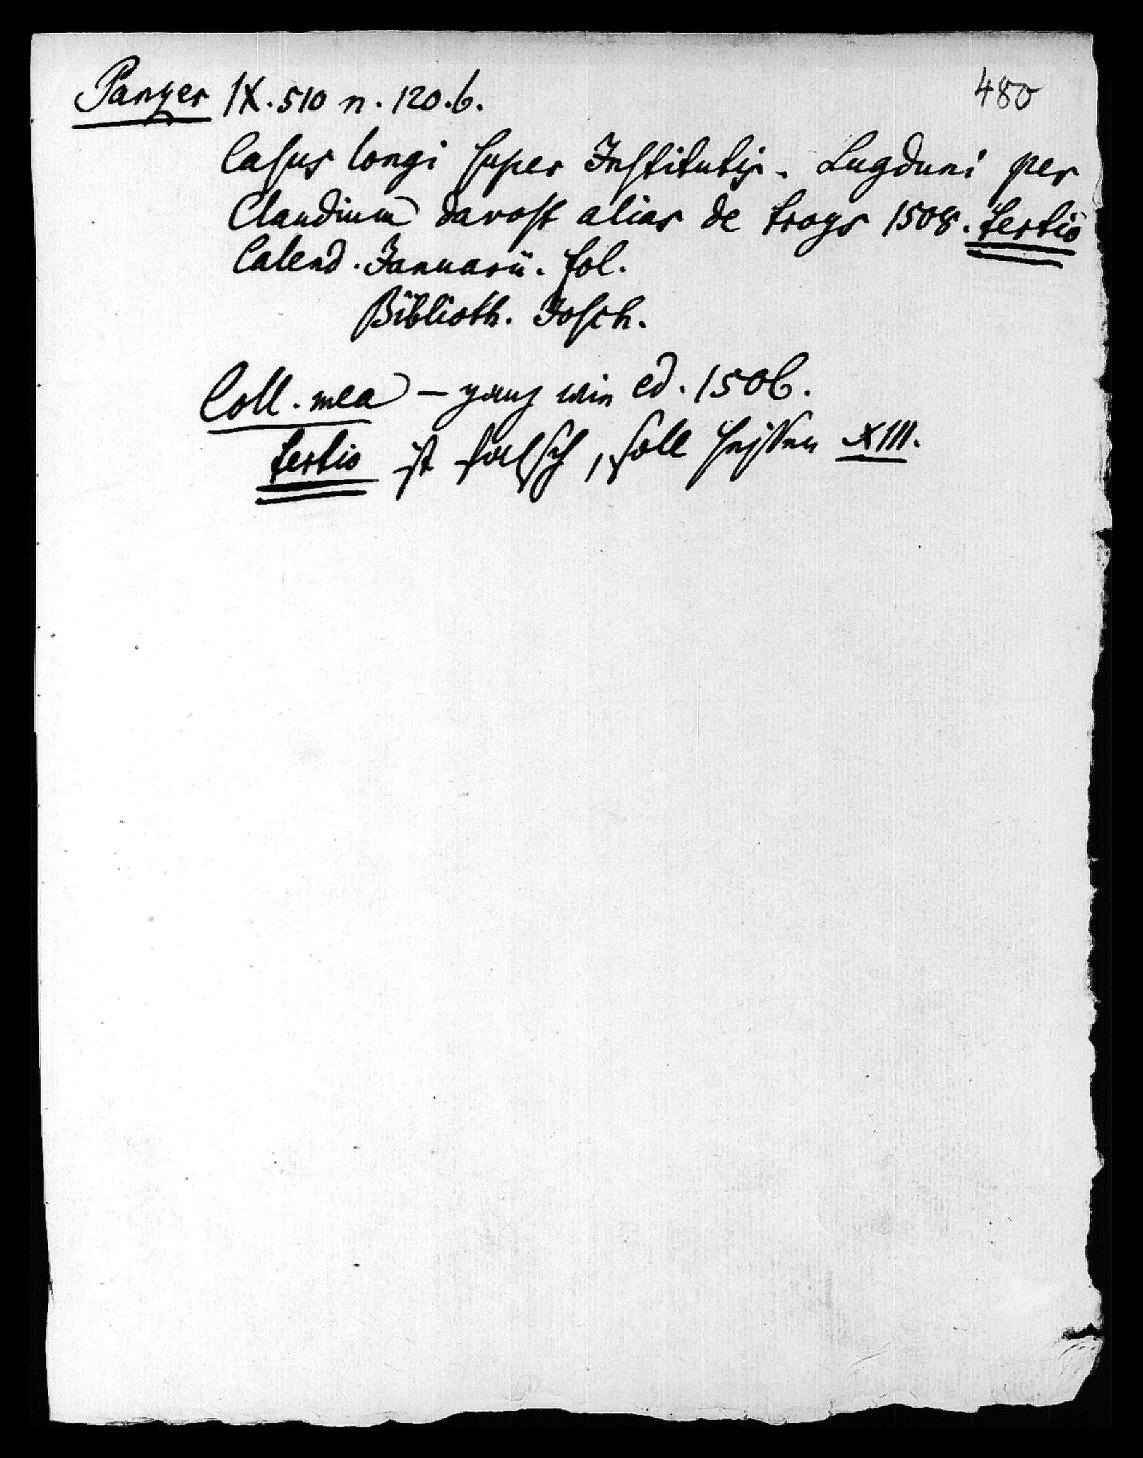 480
Panzer IX. 510 n. 120.b.
Casus longi super Institutis. Lugduni per
Claudium davost alias de troys 1508. tertio
Calend. Januarii. fol.
Biblioth. Josch.
Coll. mea – ganz wie ed. 1506.
tertio ist falsch, soll heissen XIII.